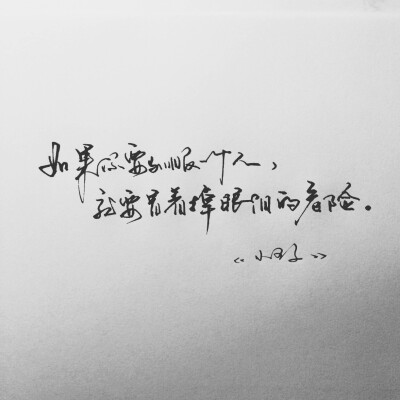 如果你要驯服一个人，
就要冒着掉眼泪的危险。
《小王子》